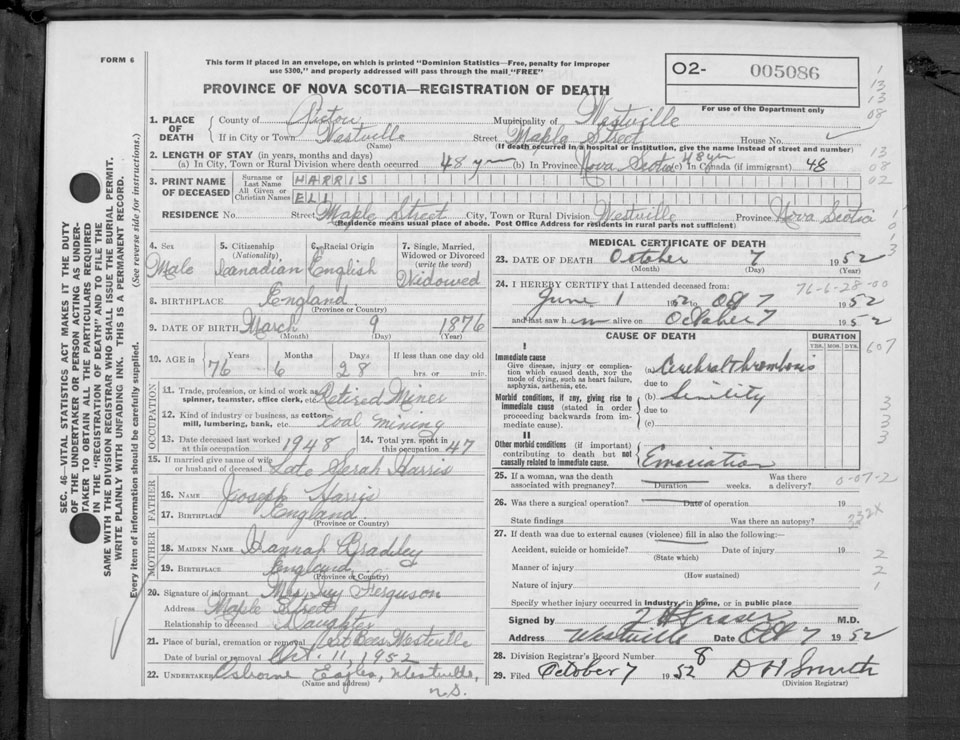 FORM 6
This form if placed in an envelope, on which is printed "Dominion Statistics—Free, penalty for improper
use $300," and properly addressed will pass through the mail "FREE"
O2- 005086
For use of the Department only
PROVINCE OF NOVA SCOTIA—REGISTRATION OF DEATH
SEC. 46—VITAL STATISTICS ACT MAKES IT THE DUTY
OF THE UNDERTAKER OR PERSON ACTING AS UNDER-
TAKER TO OBTAIN ALL THE PARTICULARS REQUIRED
IN THE "REGISTRATION OF DEATH" AND TO FILE THE
SAME WITH THE DIVISION REGISTRAR WHO SHALL ISSUE THE BURIAL PERMIT.
WRITE PLAINLY WITH UNFADING INK. THIS IS A PERMANENT RECORD.
Every item of information should be carefully supplied. (See reverse side for instructions.)
1. PLACE OF DEATH
County of Pictou Municipality of Westville
If in City or Town Westville Street Maple Street House No.
(Name) (If death occurred in a hospital or institution, give the name instead of street and number)
2. LENGTH OF STAY (in years, months and days)
(a) In City, Town or Rural Division where death occurred 48 yrs (b) In Province Nova Scotia 48 yrs (c) In Canada (if immigrant) 48
3. PRINT NAME OF DECEASED
Surname or Last Name HARRIS
All Given or Christian Names ELI
RESIDENCE No. Street Maple Street City, Town or Rural Division Westville Province Nova Scotia
(Residence means usual place of abode. Post Office Address for residents in rural parts not sufficient)
4. Sex 5. Citizenship (Nationality) 6. Racial Origin 7. Single, Married, Widowed or Divorced (write the word)
Male Canadian English Widowed
8. BIRTHPLACE England
(Province or Country)
9. DATE OF BIRTH March 9 1876
(Month) (Day) (Year)
10. AGE in Years Months Days If less than one day old
76 6 28 hrs. or min.
OCCUPATION
11. Trade, profession, or kind of work as spinner, teamster, office clerk, etc. Retired Miner
12. Kind of industry or business, as cotton-mill, lumbering, bank, etc. Coal mining
13. Date deceased last worked at this occupation 1948 14. Total yrs. spent in this occupation 47
15. If married give name of wife or husband of deceased Late Sarah Harris
FATHER
16. NAME Joseph Harris
17. BIRTHPLACE England
(Province or Country)
MOTHER
18. MAIDEN NAME Hannah Bradley
19. BIRTHPLACE England
(Province or Country)
20. Signature of informant Mrs Ferguson
Address Maple Street
Relationship to deceased Daughter
21. Place of burial, cremation or removal Westville
Date of burial or removal Oct. 11, 1952
22. UNDERTAKER Osborne Eagles, Westville, N.S.
(Name and address)
MEDICAL CERTIFICATE OF DEATH
23. DATE OF DEATH October 7 1952
(Month) (Day) (Year)
24. I HEREBY CERTIFY that I attended deceased from: 76-6-28-00
June 1 1952 to Oct 7 1952
and last saw him alive on October 7 1952
CAUSE OF DEATH DURATION
YRS. MOS. DYS.
607
I
Immediate cause
Give disease, injury or complication which caused death, not the mode of dying, such as heart failure, asphyxia, asthenia, etc.
(a) Cerebral thrombosis
due to
Morbid conditions, if any, giving rise to immediate cause (stated in order proceeding backwards from immediate cause).
(b) Senility
due to
(c)
II
Other morbid conditions (if important) contributing to death but not causally related to immediate cause.
Emaciation
25. If a woman, was the death associated with pregnancy? Duration weeks. Was there a delivery?
26. Was there a surgical operation? Date of operation 19
State findings Was there an autopsy?
27. If death was due to external causes (violence) fill in also the following:—
Accident, suicide or homicide? Date of injury 19
(State which)
Manner of injury
(How sustained)
Nature of injury
Specify whether injury occurred in industry, in home, or in public place
Signed by Fraser M.D.
Address Westville Date Oct 7 1952
28. Division Registrar's Record Number 8
29. Filed October 7 1952 D H Smith
(Division Registrar)
1
13
13
08
13
08
02
3
3
3
2
2
1